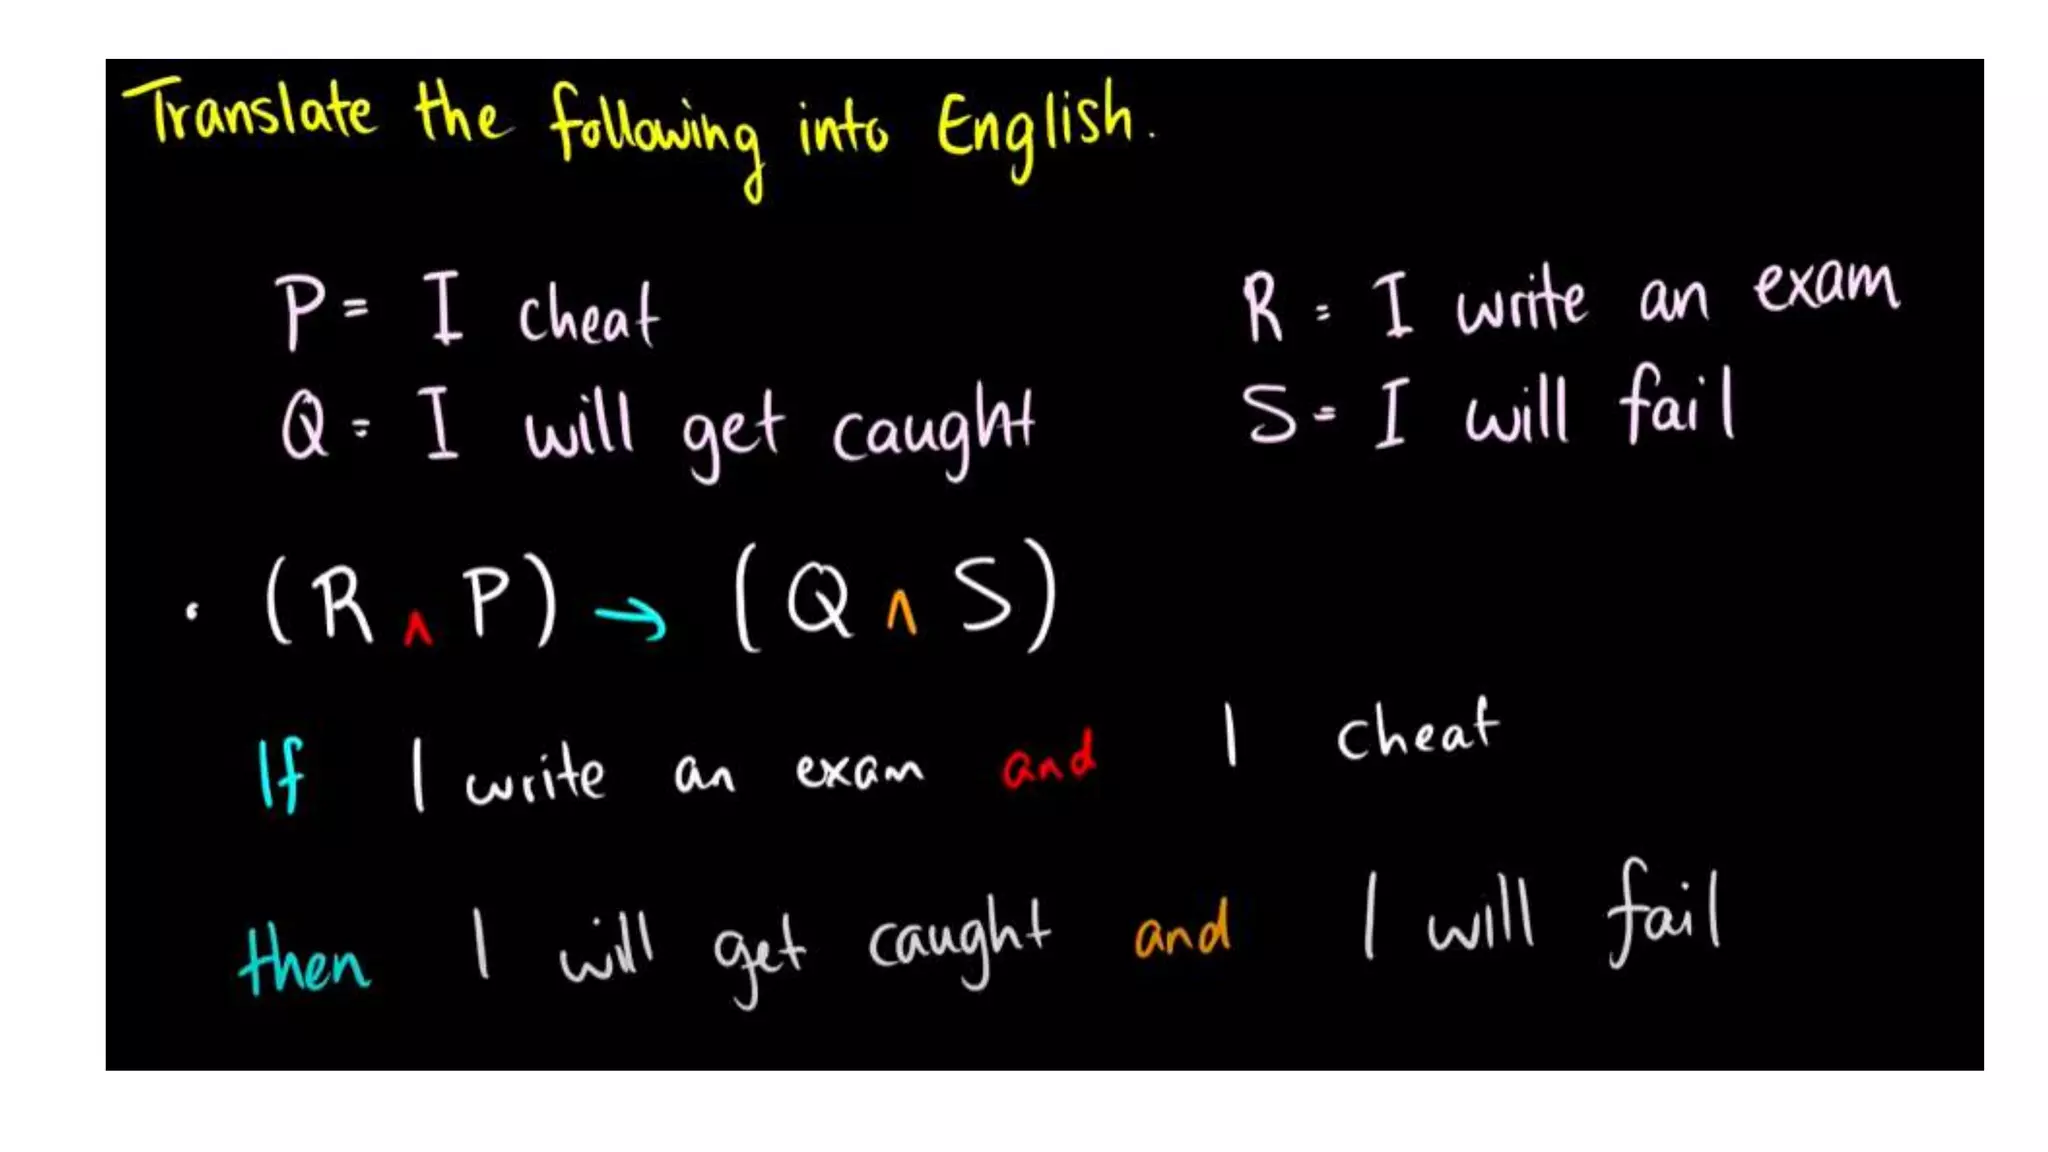 Translate the following into English.
P = I cheat
R = I write an exam
Q = I will get caught
S = I will fail
• (R ∧ P) → (Q ∧ S)
If I write an exam and I cheat
then I will get caught and I will fail